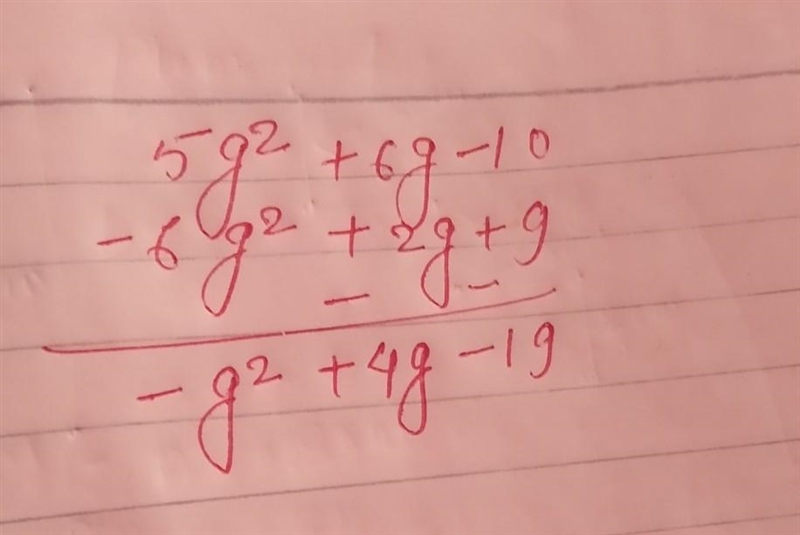 5g² + 6g - 10
- 6g² + 2g + 9
- -
- g² + 4g - 19